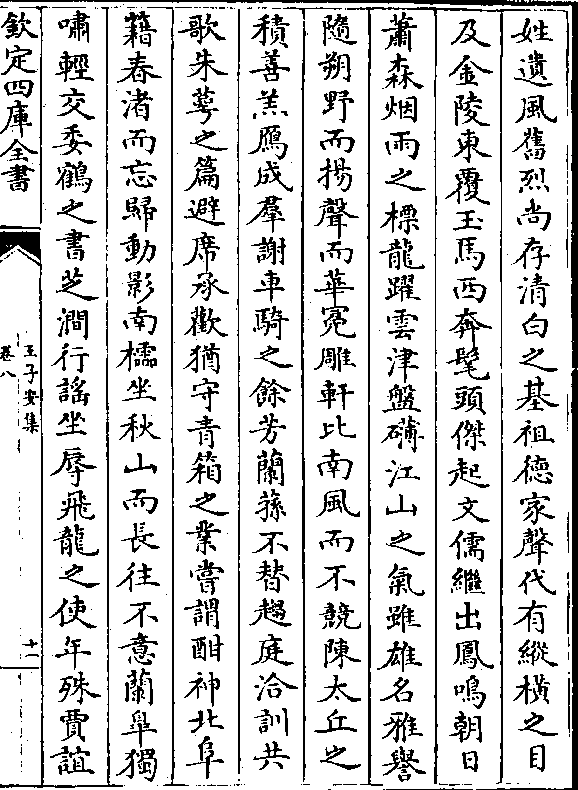 姓遺風舊烈尚存清白之基祖徳家聲代有縱横之目
及金陵東覆玉馬西奔髦頭傑起文儒繼出鳳鳴朝日
蕭森烟雨之標龍躍雲津盤礴江山之氣雖雄名雅譽
隨朔野而揚聲而華冕雕軒比南風而不競陳太丘之
積善羔鴈成羣謝車騎之餘芳蘭蓀不替趨庭洽訓共
歌朱萼之篇避席承歡猶守青箱之業嘗謂酣神北阜
籍春渚而忘歸動影南檽坐秋山而長往不意蘭皐獨
嘯輕交委鶴之書芝澗行謠坐辱飛龍之使年殊賈誼
欽定四庫全書
王子安集
卷八
十一